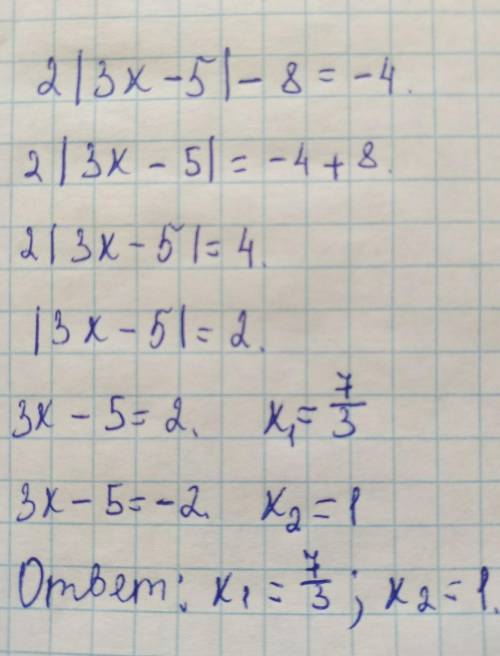 2|3x - 5| - 8 = -4.
2|3x - 5| = -4 + 8.
2|3x - 5| = 4.
|3x - 5| = 2.
3x - 5 = 2. x₁ = 7/3
3x - 5 = -2. x₂ = 1
Ответ: x₁ = 7/3; x₂ = 1.